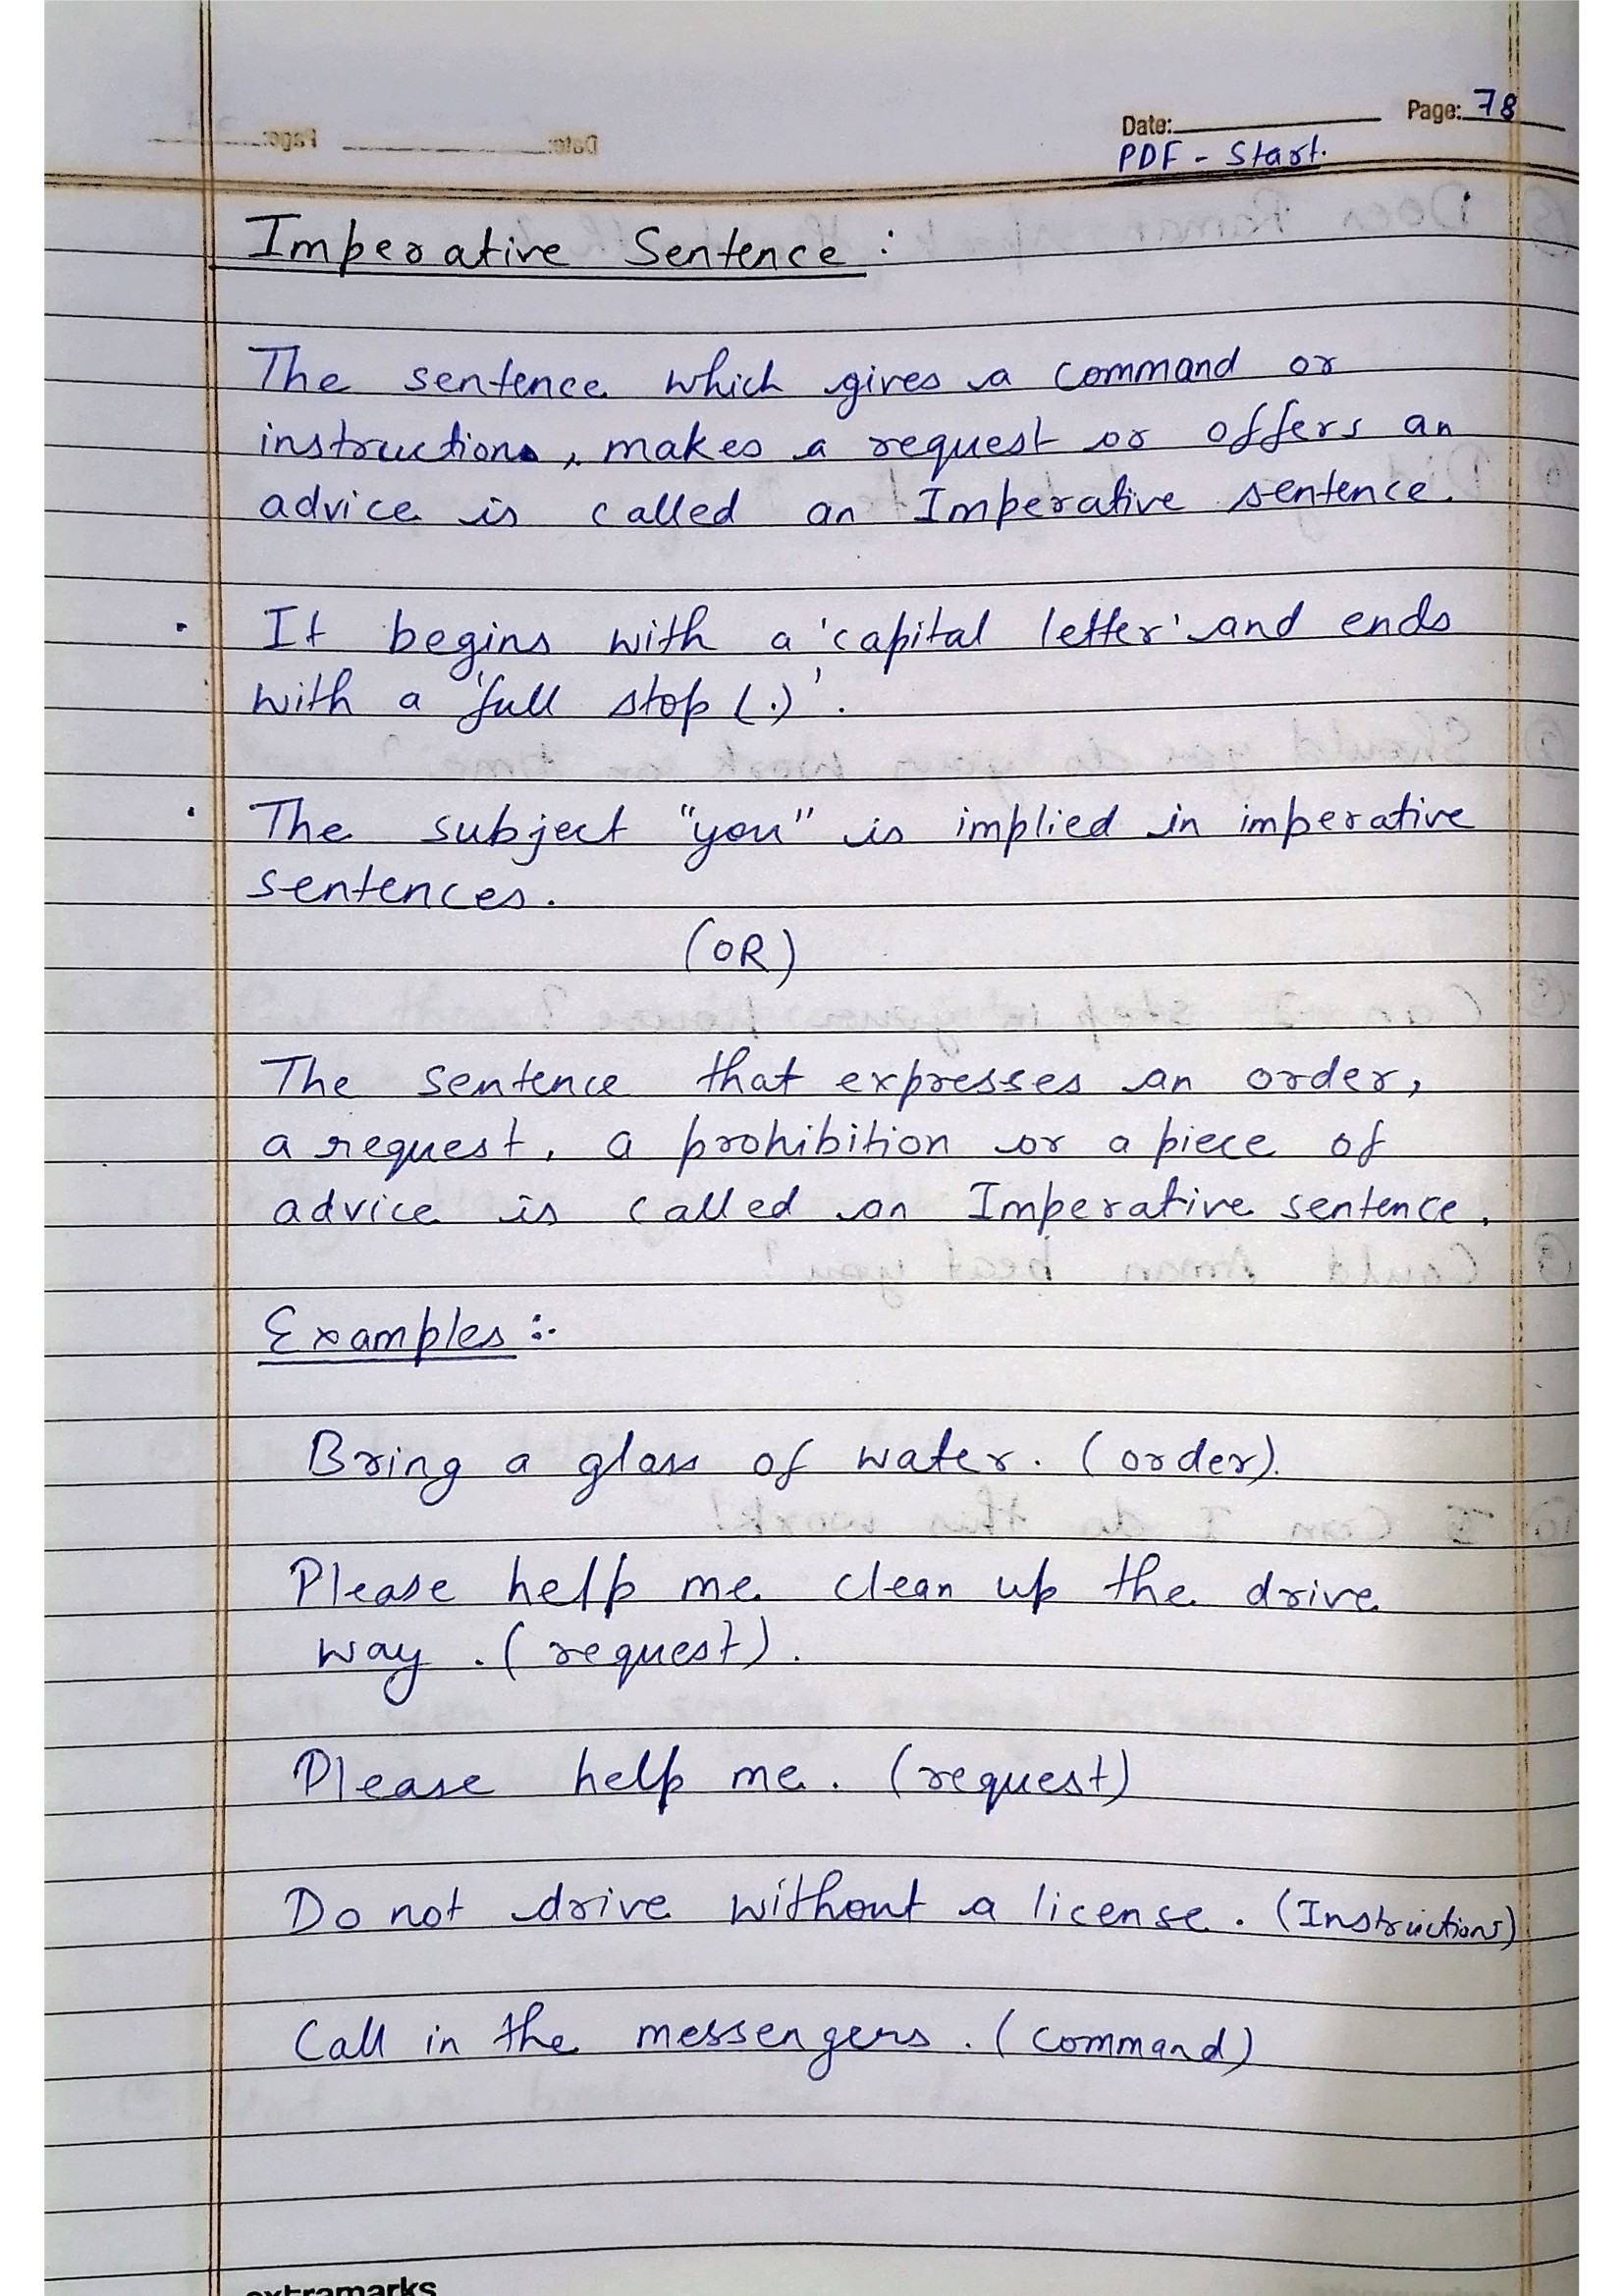 Date: Page: 78
PDF - Start.
Imperative Sentence :
The sentence which gives a command or
instructions, makes a request or offers an
advice is called an Imperative sentence.
• It begins with a 'capital letter' and ends
with a 'full stop (.)'.
• The subject "you" is implied in imperative
sentences.
(OR)
The sentence that expresses an order,
a request, a prohibition or a piece of
advice is called an Imperative sentence.
Examples :-
Bring a glass of water. (order).
Please help me clean up the drive
way. (request).
Please help me. (request)
Do not drive without a license. (Instructions)
Call in the messengers. (command)
extramarks